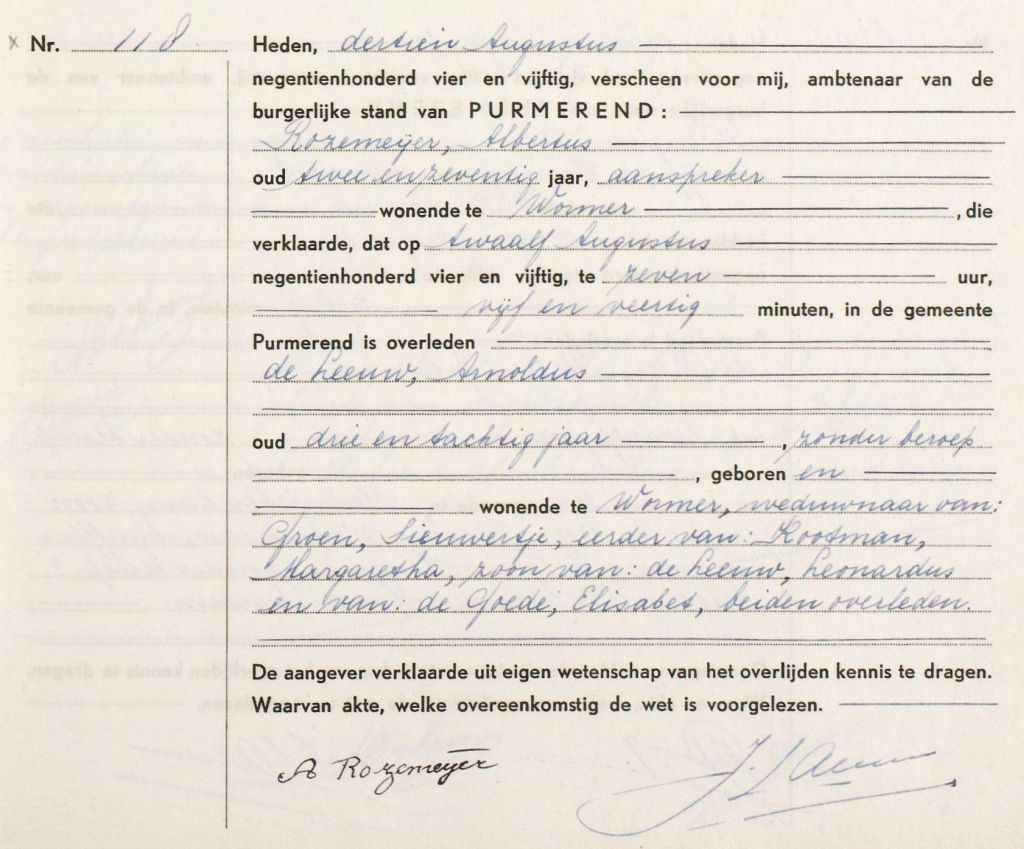 Nr. 118 Heden, dertien Augustus
negentienhonderd vier en vijftig, verscheen voor mij, ambtenaar van de
burgerlijke stand van PURMEREND:
Rozemeijer, Albertus
oud twee en zeventig jaar, aanspreker
wonende te Wormer, die
verklaarde, dat op twaalf Augustus
negentienhonderd vier en vijftig, te zeven uur,
vijf en veertig minuten, in de gemeente
Purmerend is overleden
de Leeuw, Arnoldus
oud drie en tachtig jaar, zonder beroep
, geboren en
wonende te Wormer, weduwnaar van:
Groen, Sieuwertje, eerder van: Kootman,
Margaretha, zoon van: de Leeuw, Leonardus
en van: de Goede, Elisabet, beiden overleden.
De aangever verklaarde uit eigen wetenschap van het overlijden kennis te dragen.
Waarvan akte, welke overeenkomstig de wet is voorgelezen.
A Rozemeijer